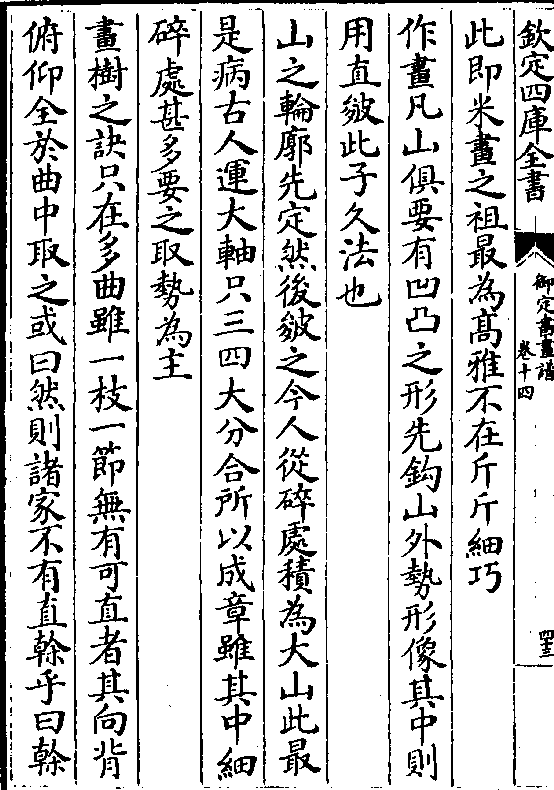 欽定四庫全書
御定書畫譜
卷十四
四三
此即米畫之祖最為髙雅不在斤斤細巧
作畫凡山俱要有凹凸之形先鈎山外勢形像其中則
用直皴此子久法也
山之輪廓先定然後皴之今人從碎處積為大山此最
是病古人運大軸只三四大分合所以成章雖其中細
碎處甚多要之取勢為主
畫樹之訣只在多曲雖一枝一節無有可直者其向背
俯仰全於曲中取之或曰然則諸家不有直榦乎曰榦